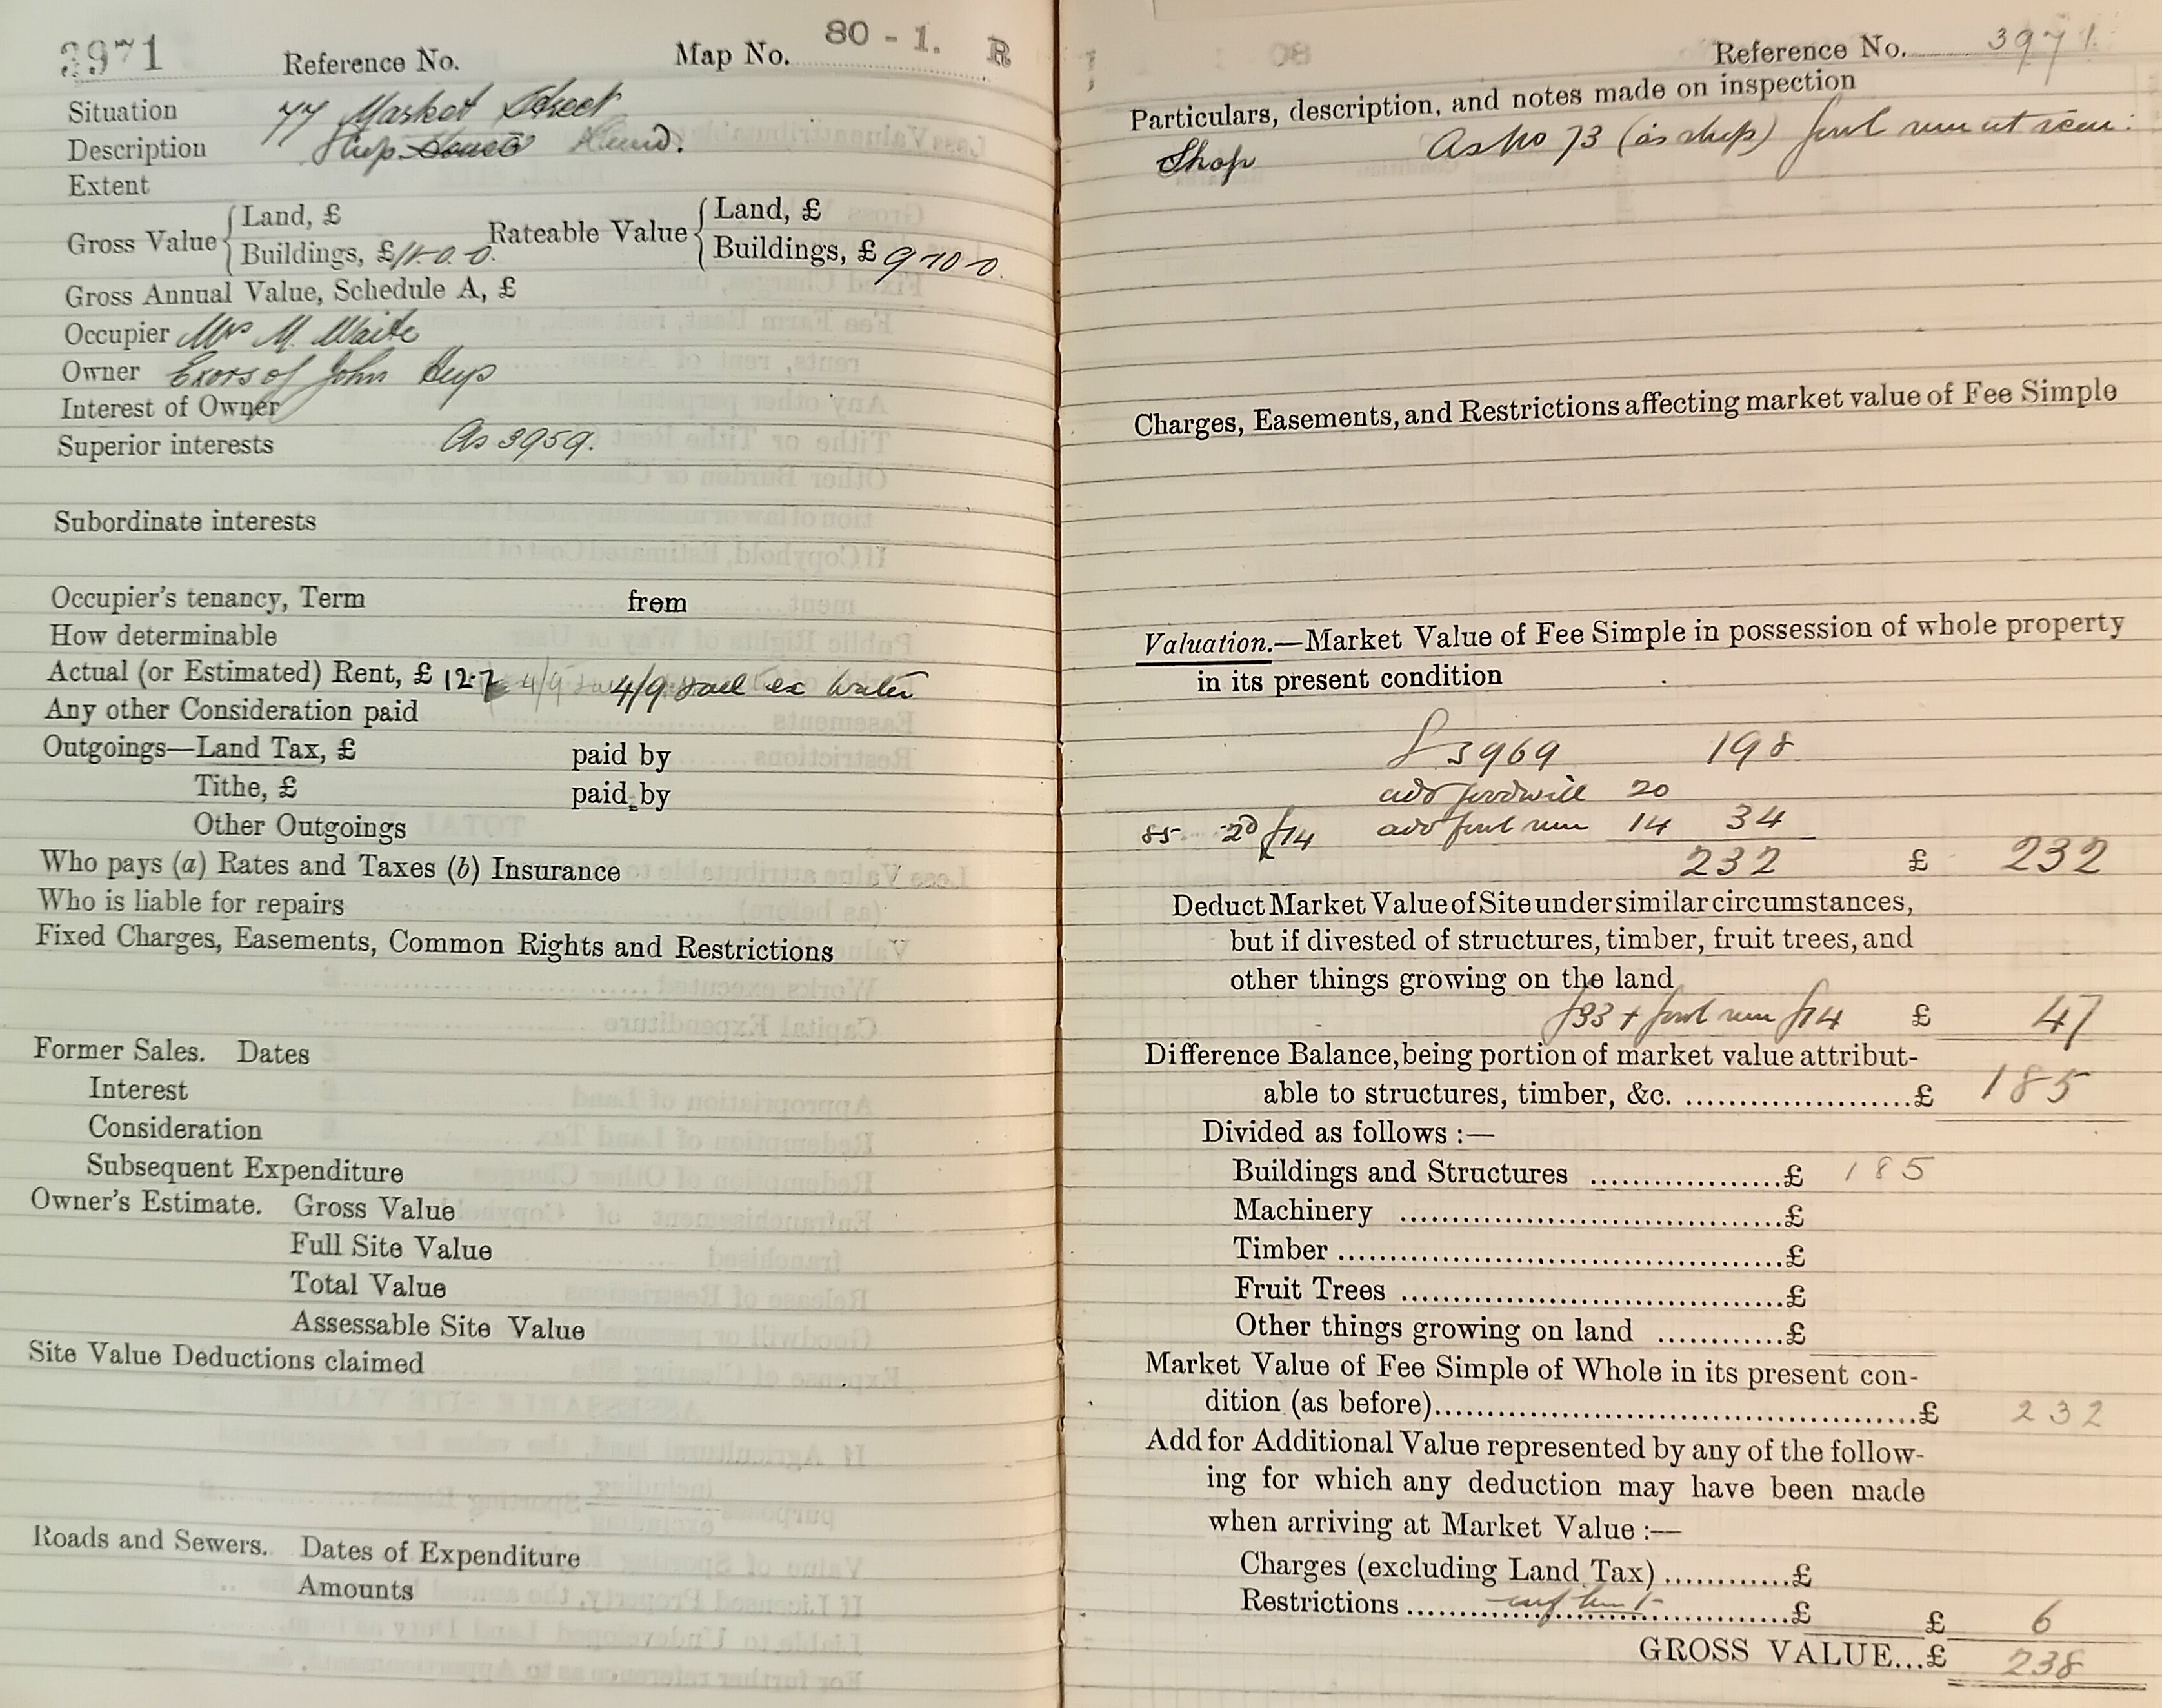 3971 Reference No. Map No. 80 - 1. R
Situation 77 Market Street
Description Shop House & Land.
Extent
Gross Value { Land, £
Buildings, £ 11-0-0. Rateable Value { Land, £
Buildings, £ 9-10-0
Gross Annual Value, Schedule A, £
Occupier Mrs M. Waite
Owner Exors of John Heys
Interest of Owner
Superior interests As 3959.
Subordinate interests
Occupier's tenancy, Term from
How determinable
Actual (or Estimated) Rent, £ 12.7 4/9 4/9 ex water
Any other Consideration paid
Outgoings—Land Tax, £ paid by
Tithe, £ paid by
Other Outgoings
Who pays (a) Rates and Taxes (b) Insurance
Who is liable for repairs
Fixed Charges, Easements, Common Rights and Restrictions
Former Sales. Dates
Interest
Consideration
Subsequent Expenditure
Owner's Estimate. Gross Value
Full Site Value
Total Value
Assessable Site Value
Site Value Deductions claimed
Roads and Sewers. Dates of Expenditure
Amounts
Reference No. 3971.
Particulars, description, and notes made on inspection
Shop As No 73 (as shop) fowl run at rear.
Charges, Easements, and Restrictions affecting market value of Fee Simple
Valuation.—Market Value of Fee Simple in possession of whole property
in its present condition
£ 3969 198
add goodwill 20
85 2d £14 add fowl run 14 34
232 £ 232
Deduct Market Value of Site under similar circumstances,
but if divested of structures, timber, fruit trees, and
other things growing on the land
£33 + fowl run £14 £ 47
Difference Balance, being portion of market value attribut-
able to structures, timber, &c. £ 185
Divided as follows :—
Buildings and Structures £ 185
Machinery £
Timber £
Fruit Trees £
Other things growing on land £
Market Value of Fee Simple of Whole in its present con-
dition (as before) £ 232
Add for Additional Value represented by any of the follow-
ing for which any deduction may have been made
when arriving at Market Value :—
Charges (excluding Land Tax) £
Restrictions £ £ 6
GROSS VALUE...£ 238